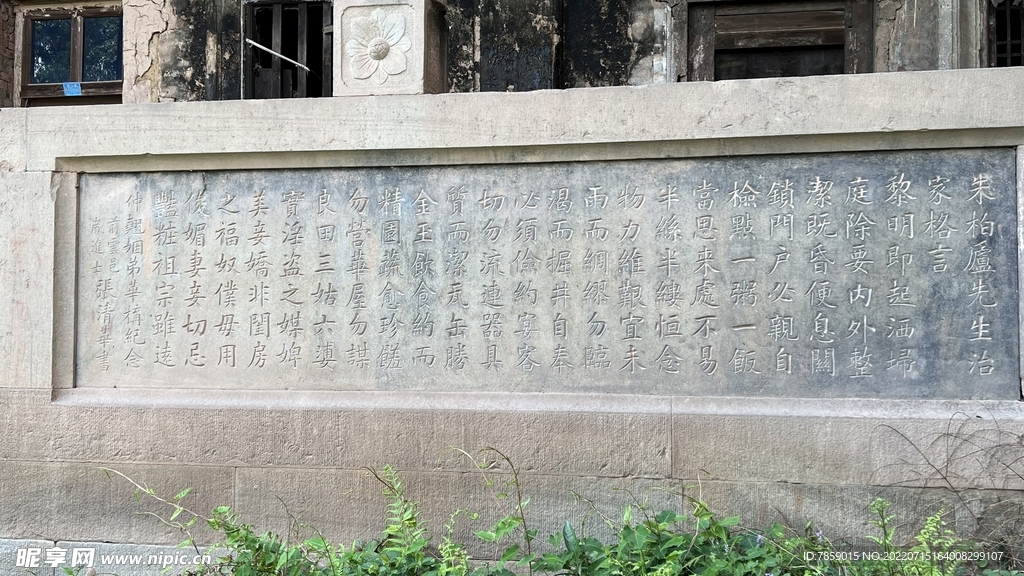 朱柏廬先生治
家格言
黎明即起洒埽
庭除要内外整
潔既昏便息關
鎖門户必親自
檢點一粥一飯
當思来處不易
半絲半縷恒念
物力維艱宜未
雨而綢繆勿臨
渴而掘井自奉
必須儉約宴客
切勿流連器具
質而潔瓦缶勝
金玉飲食約而
精園蔬愈珍饈
勿營華屋勿謀
良田三姑六婆
實淫盗之媒婢
美妾嬌非閨房
之福奴僕毋用
俊媚妻妾切忌
豔粧祖宗雖遠
仲姻弟華紀念
前雲邑
歲進士張清華書
昵享网 www.nipic.cn
ID:7859015 NO:20220715164008299107